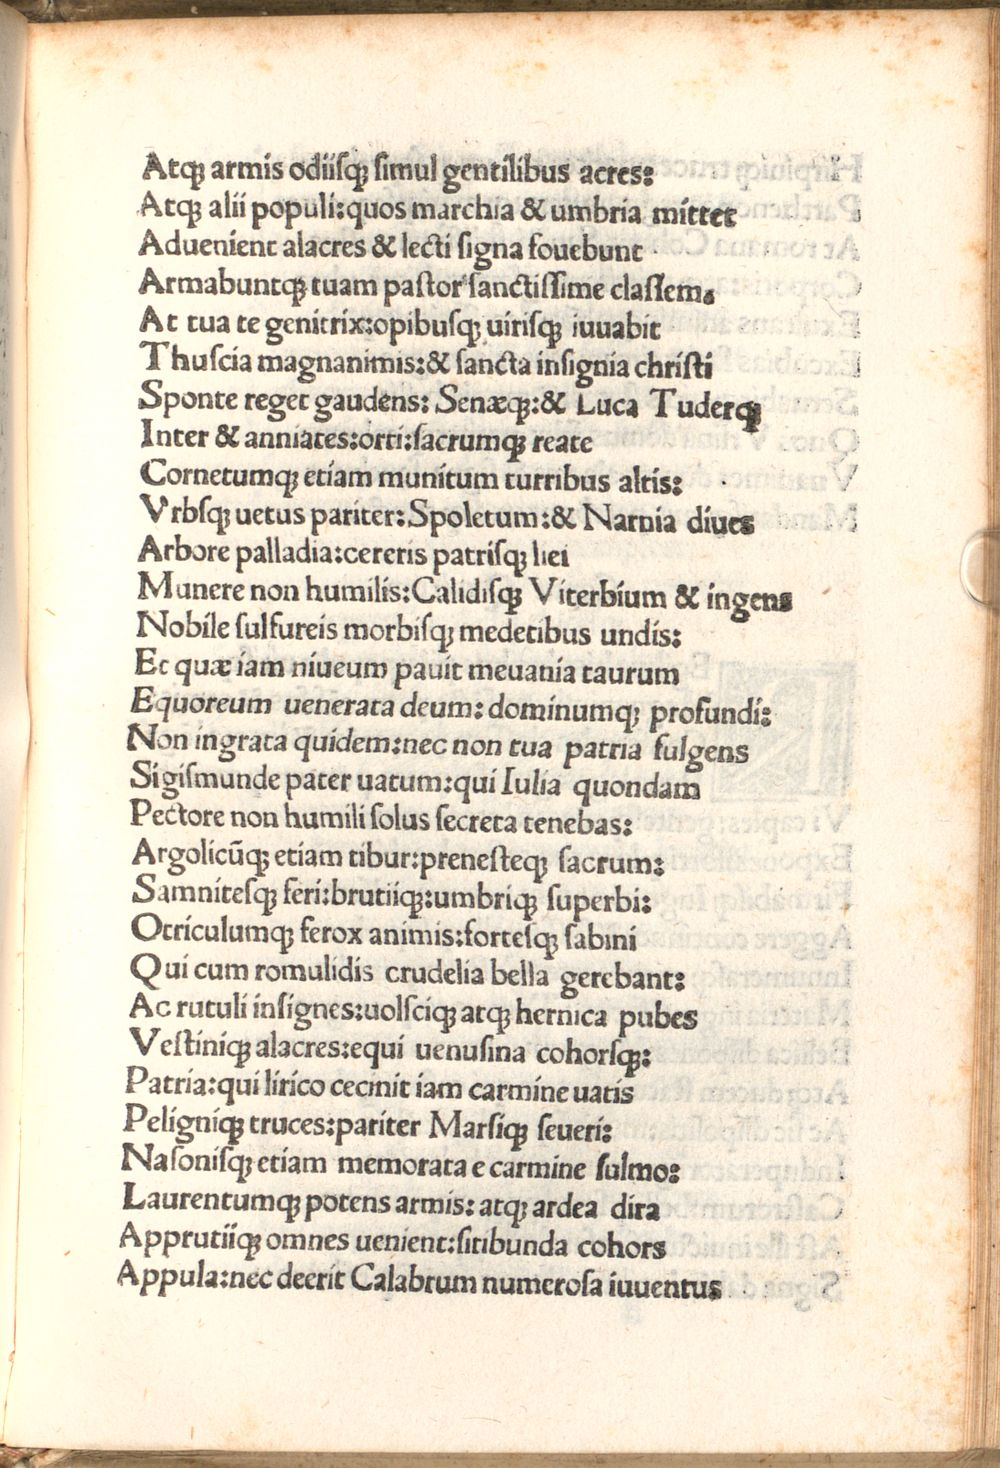 Atqꝫ armis odiiſqꝫ ſimul gentilibus acres:
Atqꝫ alii populi:quos marchia & umbria mittet
Aduenient alacres & lecti ſigna fouebunt
Armabuntqꝫ tuam paſtor ſanctiſſime claſſem.
At tua te genitrix:opibuſqꝫ uiriſqꝫ iuuabit
Thuſcia magnanimis:& ſancta inſignia chriſti
Sponte reget gaudens: Senæqꝫ:& Luca Tuderqꝫ
Inter & anniates:orti:ſacrumqꝫ reate
Cornetumqꝫ etiam munitum turribus altis:
Vrbſqꝫ uetus pariter:Spoletum:& Narnia diues
Arbore palladia:cereris patriſqꝫ liei
Munere non humilis:Calidiſqꝫ Viterbium & ingens
Nobile ſulfureis morbiſqꝫ medetibus undis:
Et quæ iam niueum pauit meuania taurum
Equoreum uenerata deum: dominumqꝫ profundi:
Non ingrata quidem:nec non tua patria fulgens
Sigiſmunde pater uatum:qui Iulia quondam
Pectore non humili ſolus ſecreta tenebas:
Argolicūqꝫ etiam tibur:preneſteqꝫ ſacrum:
Samniteſqꝫ feri:brutiiqꝫ:umbriqꝫ ſuperbi:
Otriculumqꝫ ferox animis:forteſqꝫ ſabini
Qui cum romulidis crudelia bella gerebant:
Ac rutuli inſignes:uolſciqꝫ atqꝫ hernica pubes
Veſtiniqꝫ alacres:equi uenuſina cohorſqꝫ:
Patria:qui lirico cecinit iam carmine uatis
Peligniqꝫ truces:pariter Marſiqꝫ ſeueri:
Naſoniſqꝫ etiam memorata e carmine ſulmo:
Laurentumqꝫ potens armis: atqꝫ ardea dira
Apprutiiqꝫ omnes uenient:ſitibunda cohors
Appula:nec deerit Calabrum numeroſa iuuentus